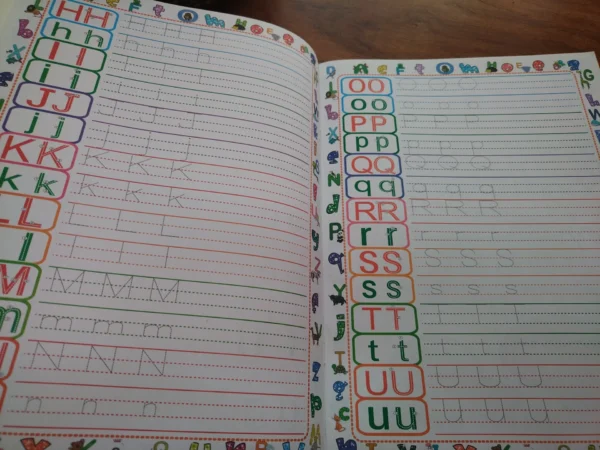 HH H H H
hh h h h
II I I I
ii i i i
JJ J J J
jj j j j
KK K K K
kk k k k
LL L L L
l l l l
M M M M
m m m m
N N N
n n n
OO O O O
oo o o o
PP P P P
pp p p p
QQ Q Q Q
qq q q q
RR R R R
rr r r r
SS S S S
ss s s s
TT T T T
tt t t t
UU U U U
uu u u u